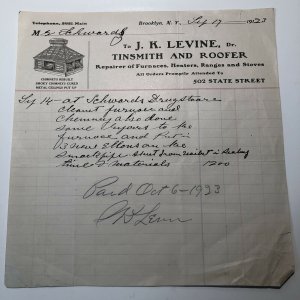 Telephone, 5862 Main
Brooklyn, N. Y., Sep 17 1923
Mr Schwards
To J. K. LEVINE, Dr.
TINSMITH AND ROOFER
Repairer of Furnaces, Heaters, Ranges and Stoves
All Orders Promptly Attended To
502 STATE STREET
CHIMNEYS REBUILT
SMOKY CHIMNEYS CURED
METAL CEILINGS PUT UP
Sep 14 at Schwards Drugstoare
Cleant furnace and
Chimney also done
Some to the
furnace and Put in
13 new on the
Smoakpipe
time & materials 1200
Paid Oct 6-1923